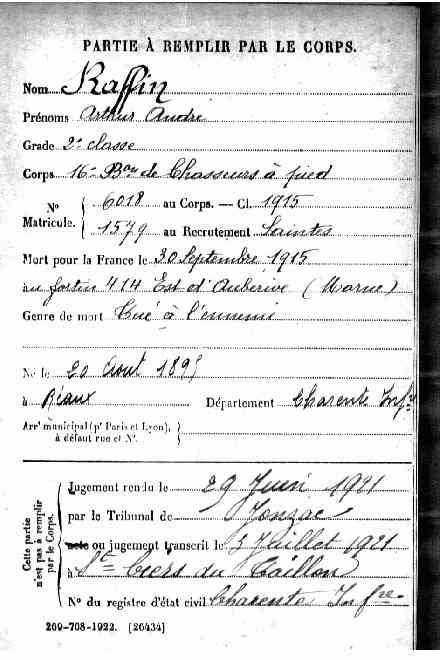 PARTIE À REMPLIR PAR LE CORPS.
Nom Raffin
Prénoms Arthur André
Grade 2e classe
Corps 16e Bon de Chasseurs à pied
No 6018 au Corps. — Cl. 1915
Matricule. 1579 au Recrutement Saintes
Mort pour la France le 30 Septembre 1915
au fortin 414 Est d'Auberive (Marne)
Genre de mort Tué à l'ennemi
Né le 20 Août 1895
à Réaux Département Charente Infre
Arrt municipal (pr Paris et Lyon), à défaut rue et No.
Cette partie n'est pas à remplir par le Corps.
Jugement rendu le 29 Juin 1921
par le Tribunal de Jonzac
acte ou jugement transcrit le 5 Juillet 1921
à St Ciers du Taillon
No du registre d'état civil Charente Infre
269-708-1922. [26434]